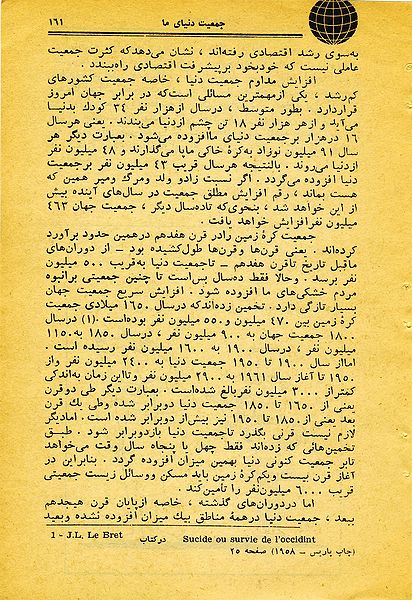 جمعیت دنیای ما
۱۶۱
به‌سوی رشد اقتصادی رفته‌اند ، نشان می‌دهدکه کثرت جمعیت
عاملی نیست که خودبخود برپیشرفت اقتصادی راه‌ببندد .
افزایش مداوم جمعیت دنیا ، خاصه جمعیت کشورهای
کم‌رشد ، یکی ازمهمترین مسائلی است‌که در برابر جهان امروز
قراردارد . بطور متوسط ، درسال ازهزار نفر ۳۴ کودك بدنیا
می‌آید و ازهر هزار نفر ۱۸ تن چشم ازدنیا می‌بندند . یعنی هرسال
۱۶ درهزار برجمعیت دنیای ماافزوده می‌شود . بعبارت دیگر هر
سال ۹۱ میلیون نوزاد به‌کرهٔ خاکی ما پا می‌گذارند و ۴۸ میلیون نفر
ازدنیا می‌روند . بالنتیجه هرسال قریب ۴۳ میلیون نفر برجمعیت
دنیا افزوده می‌گردد . اگر نسبت زادو ولد ومرگ ومیر همین که
هست بماند ، رقم افزایش مطلق جمعیت در سال‌های آینده بیش
از این خواهد شد ، بنحوی‌که تاده‌سال دیگر ، جمعیت جهان ۴۶۳
میلیون نفرافزایش خواهد یافت .
جمعیت کرهٔ زمین رادر قرن هفدهم درهمین حدود برآورد
کرده‌اند . یعنی قرن‌ها وقرن‌ها طول‌کشیده بود – از دوران‌های
ماقبل تاریخ تاقرن هفدهم – تاجمعیت دنیا به‌قریب ۵۰۰ میلیون
نفر برسد . وحالا فقط ده‌سال بس‌است تا چنین جمعیتی برانبوه
مردم خشکی‌های ما افزوده شود . افزایش سریع جمعیت جهان
بسیار تازگی دارد . تخمین زده‌اندکه درسال ۱۶۵۰ میلادی جمعیت
کرهٔ زمین بین ۴۷۰ میلیون و۵۵۰ میلیون نفر بوده‌است .(۱) درسال
۱۸۰۰ جمعیت جهان به ۹۰۰ میلیون نفر ، درسال ۱۸۵۰ به۱۱۵۰
میلیون نفر ، درسال ۱۹۰۰ به ۱۶۰۰ میلیون نفر رسیده است .
امااز سال ۱۹۰۰ تا ۱۹۵۰ جمعیت دنیا به ۲۴۰۰ میلیون نفر واز
۱۹۵۰ تا آغاز سال ۱۹۶۱ به ۲۹۰۰ میلیون نفر وتااین زمان به‌اندکی
کمتراز ۳۰۰۰ میلیون نفربالغ شده‌است . بعبارت دیگر طی دوقرن
یعنی از ۱۶۵۰ تا ۱۸۵۰ جمعیت دنیا دوبرابر شده وطی یك قرن
بعد یعنی از۱۸۵۰ تا ۱۹۵۰ نیز بیش‌از دوبرابر شده است . امادیگر
لازم نیست قرنی بگذرد تاجمعیت دنیا بازدوبرابر شود . طبق
تخمین‌هائی که زده‌اند فقط چهل یا پنجاه سال وقت می‌خواهد
تابر جمعیت کنونی دنیا بهمین میزان افزوده گردد . بنابراین در
آغاز قرن بیست ویکم‌کرهٔ زمین باید مسکن ووسائل زیست جمعیتی
قریب ۶۰۰۰ میلیون‌نفر را تأمین‌کند .
اما دردوران‌های گذشته ، خاصه ازپایان قرن هیجدهم
ببعد ، جمعیت دنیا درهمهٔ مناطق بیك میزان افزوده نشده وبعید
1 - J.L. Le Bret درکتاب Sucide ou survie de l'occidint
(چاپ پاریس – ۱۹۵۸) صفحه ۲۵